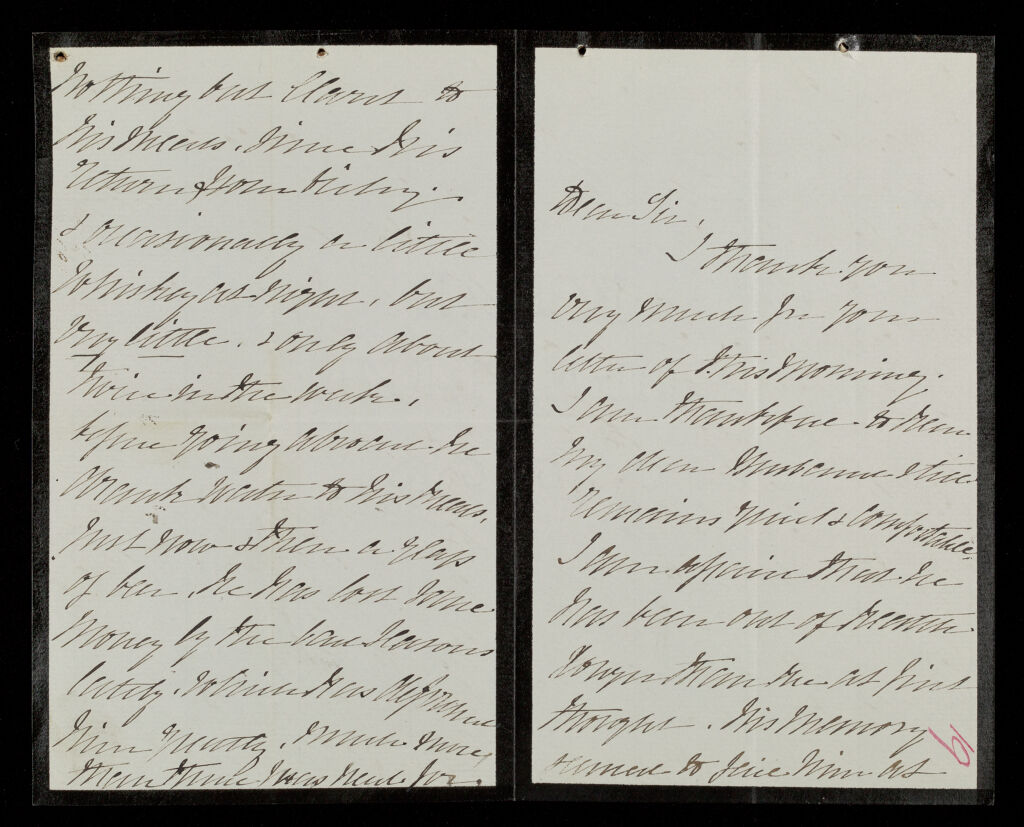 Nothing but Claret to
his meals, since his
return from
& occasionally a little
Whiskey at night, but
very little, & only about
twice in the week,
before going abroad he
drank water to his meals,
just now & then a glass
of beer, he has lost some
money by the bad seasons
lately, which has depressed
him greatly, much more
than there was need for.
Dear Sir,
I thank you
very much for your
letter of this morning.
I am thankful to hear
my dear Husband still
remains quiet & comfortable.
I am afraid that he
has been out of health
longer than we at first
thought. His memory
seemed to fail him at
61